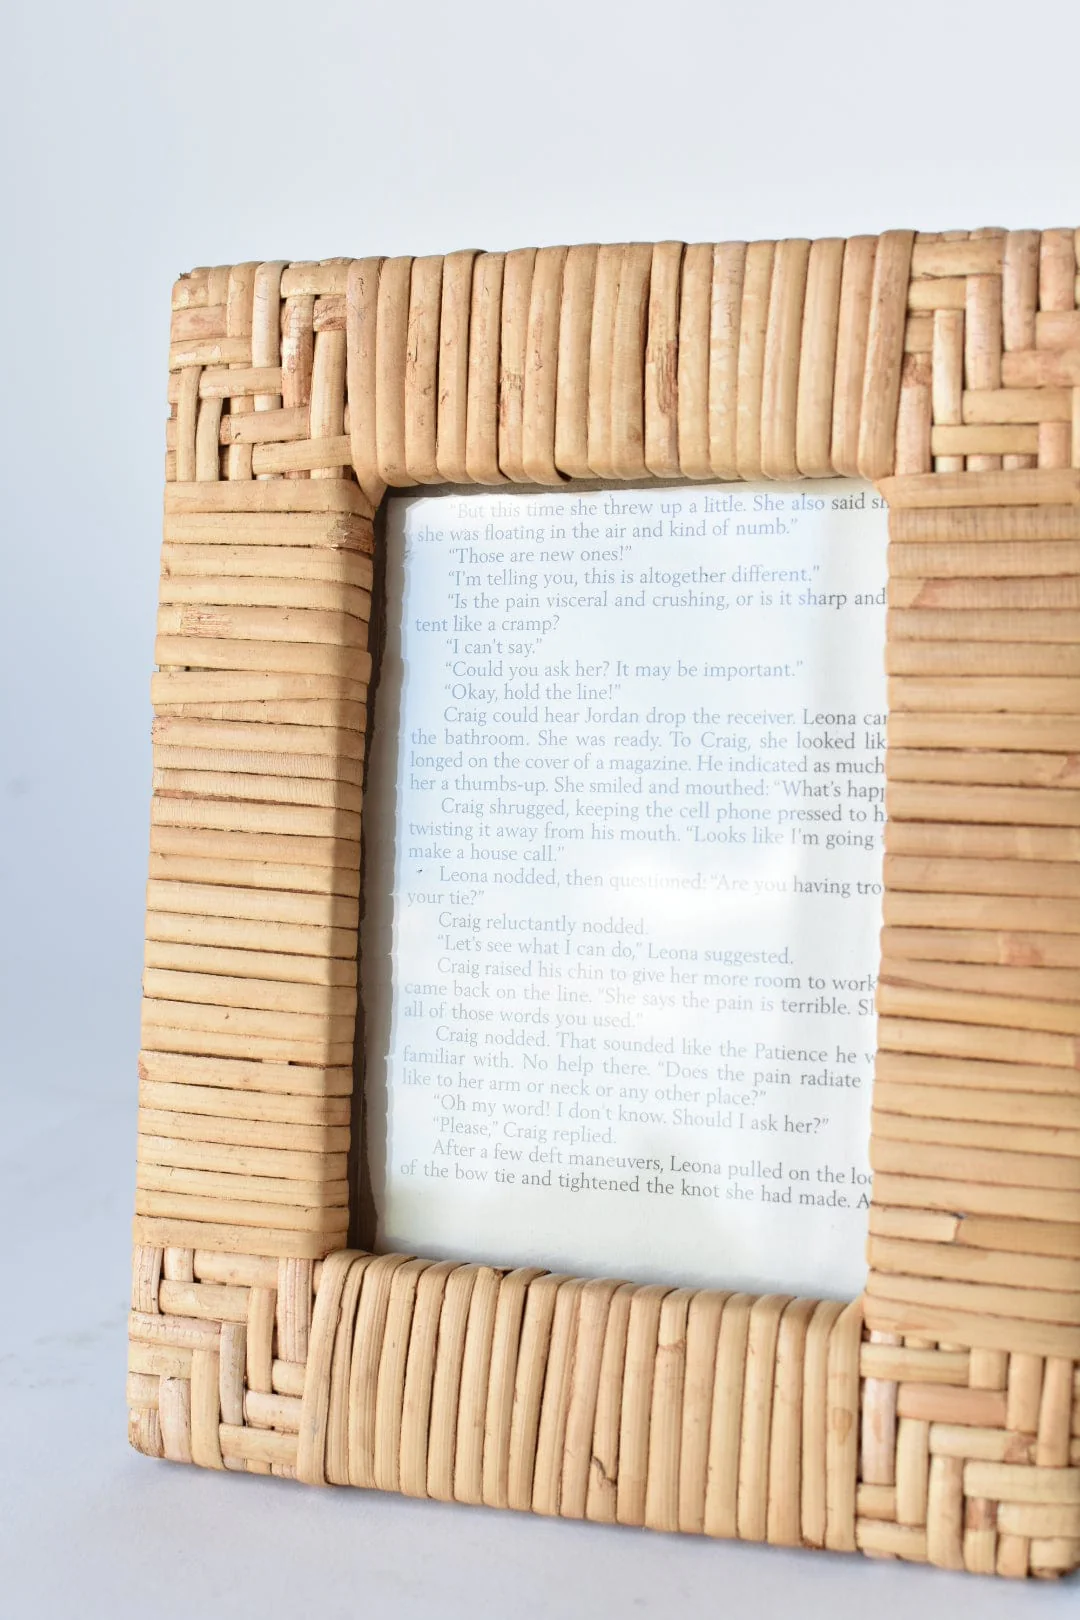 "But this time she threw up a little. She also said
she was floating in the air and kind of numb."
"Those are new ones!"
"I'm telling you, this is altogether different."
"Is the pain visceral and crushing, or is it sharp and
tent like a cramp?
"I can't say."
"Could you ask her? It may be important."
"Okay, hold the line!"
Craig could hear Jordan drop the receiver. Leona
the bathroom. She was ready. To Craig, she looked
longed on the cover of a magazine. He indicated as much
her a thumbs-up. She smiled and mouthed: "What's
Craig shrugged, keeping the cell phone pressed to
twisting it away from his mouth. "Looks like I'm going
make a house call."
Leona nodded, then questioned: "Are you having
your tie?"
Craig reluctantly nodded.
"Let's see what I can do," Leona suggested.
Craig raised his chin to give her more room to work
came back on the line. "She says the pain is terrible.
all of those words you used."
Craig nodded. That sounded like the Patience he
familiar with. No help there. "Does the pain radiate
like to her arm or neck or any other place?"
"Oh my word! I don't know. Should I ask her?"
"Please," Craig replied.
After a few deft maneuvers, Leona pulled on the
of the bow tie and tightened the knot she had made.